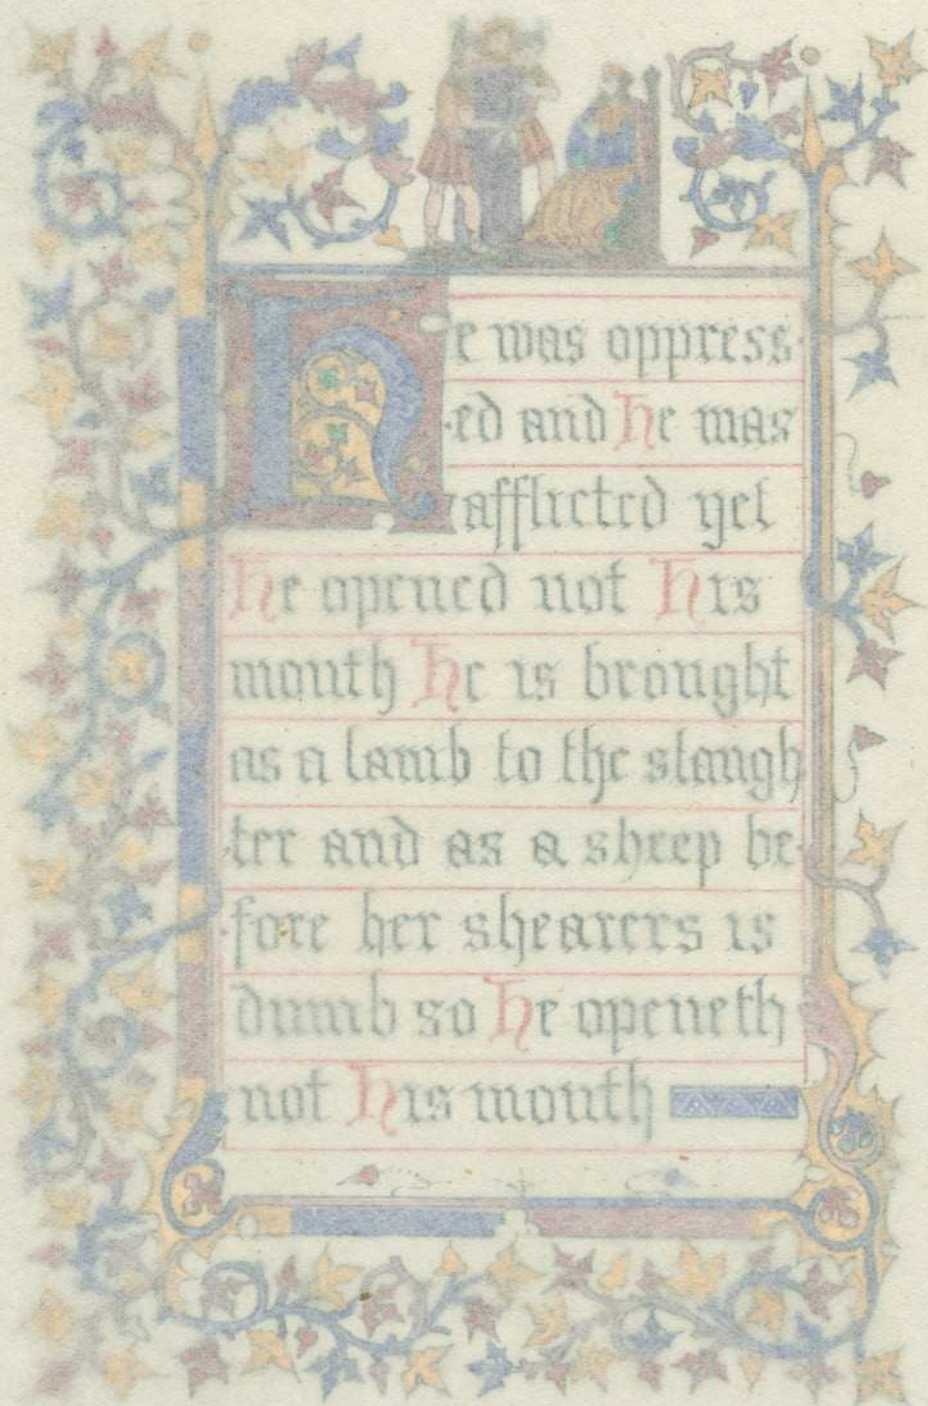 He was oppress-
-ed and He was
afflicted yet
He opened not His
mouth He is brought
as a lamb to the slaugh
-ter and as a sheep be-
-fore her shearers is
dumb so He openeth
not His mouth